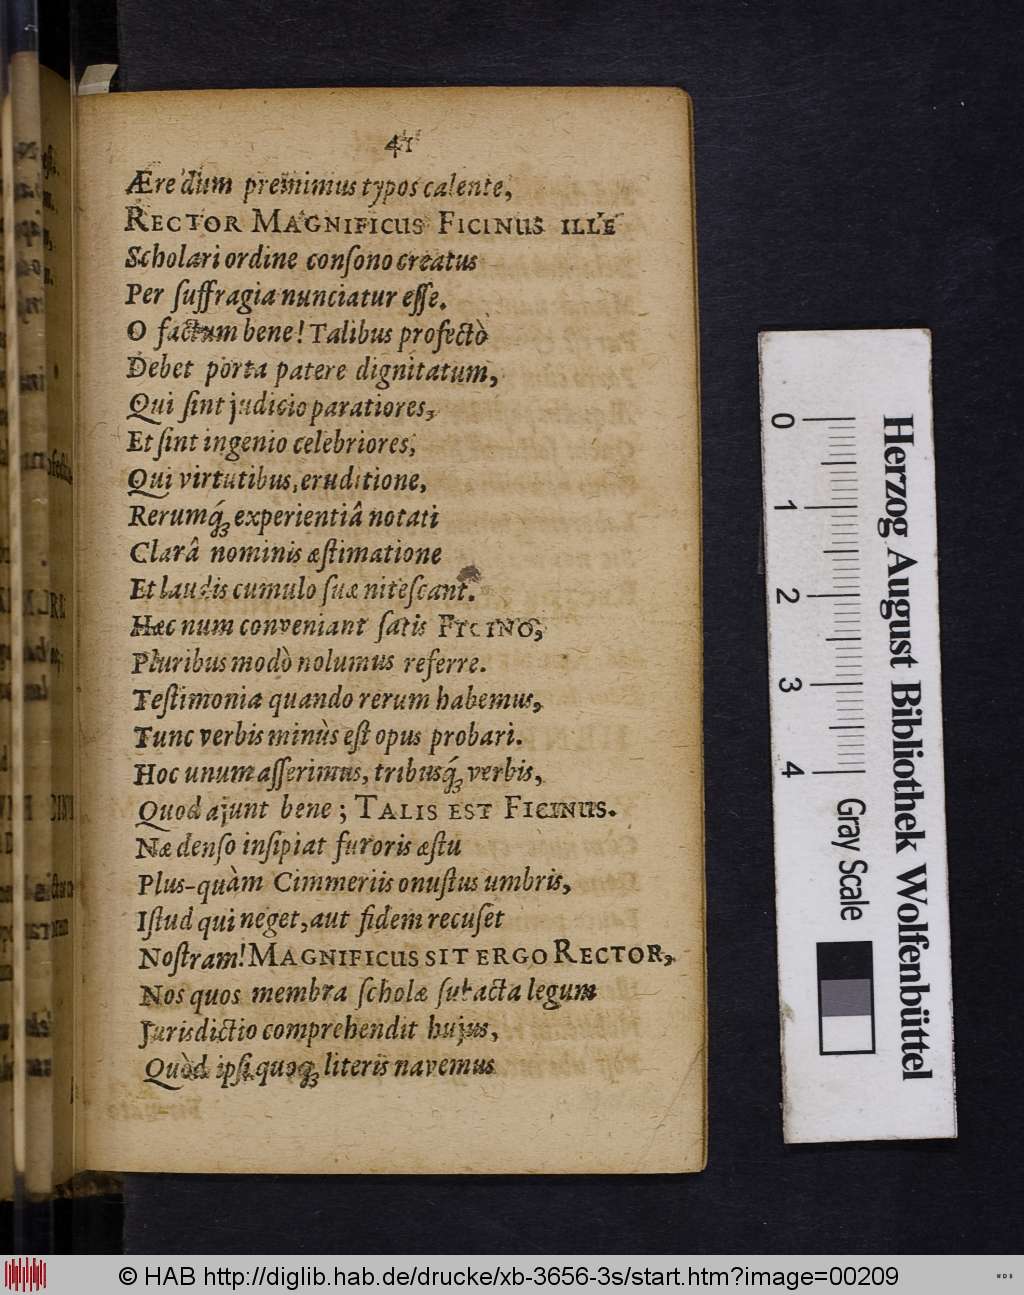 41
Ære dum premimus typos calente,
RECTOR MAGNIFICUS FICINUS ILLE
Scholari ordine conſono creatus
Per ſuffragia nunciatur eſſe.
O factum bene! Talibus profectò
Debet porta patere dignitatum,
Qui ſint judicio paratiores,
Et ſint ingenio celebriores,
Qui virtutibus, eruditione,
Rerumq́ꝫ experientiâ notati
Clarâ nominis æſtimatione
Et laudis cumulo ſuæ niteſcant.
Hæc num conveniant ſatis FICINO,
Pluribus modò nolumus referre.
Teſtimonia quando rerum habemus,
Tunc verbis minùs eſt opus probari.
Hoc unum aſſerimus, tribusq́ꝫ verbis,
Quod ajunt bene; TALIS EST FICINUS.
Næ denſo inſipiat furoris æſtu
Plus-quàm Cimmeriis onuſtus umbris,
Iſtud qui neget, aut fidem recuſet
Noſtram! MAGNIFICUS SIT ERGO RECTOR,
Nos quos membra ſcholæ ſubacta legum
Jurisdictio comprehendit hujus,
Quòd ipſi quoqꝫ literis navemus
Herzog August Bibliothek Wolfenbüttel
0 1 2 3 4 Gray Scale
© HAB http://diglib.hab.de/drucke/xb-3656-3s/start.htm?image=00209
WDB